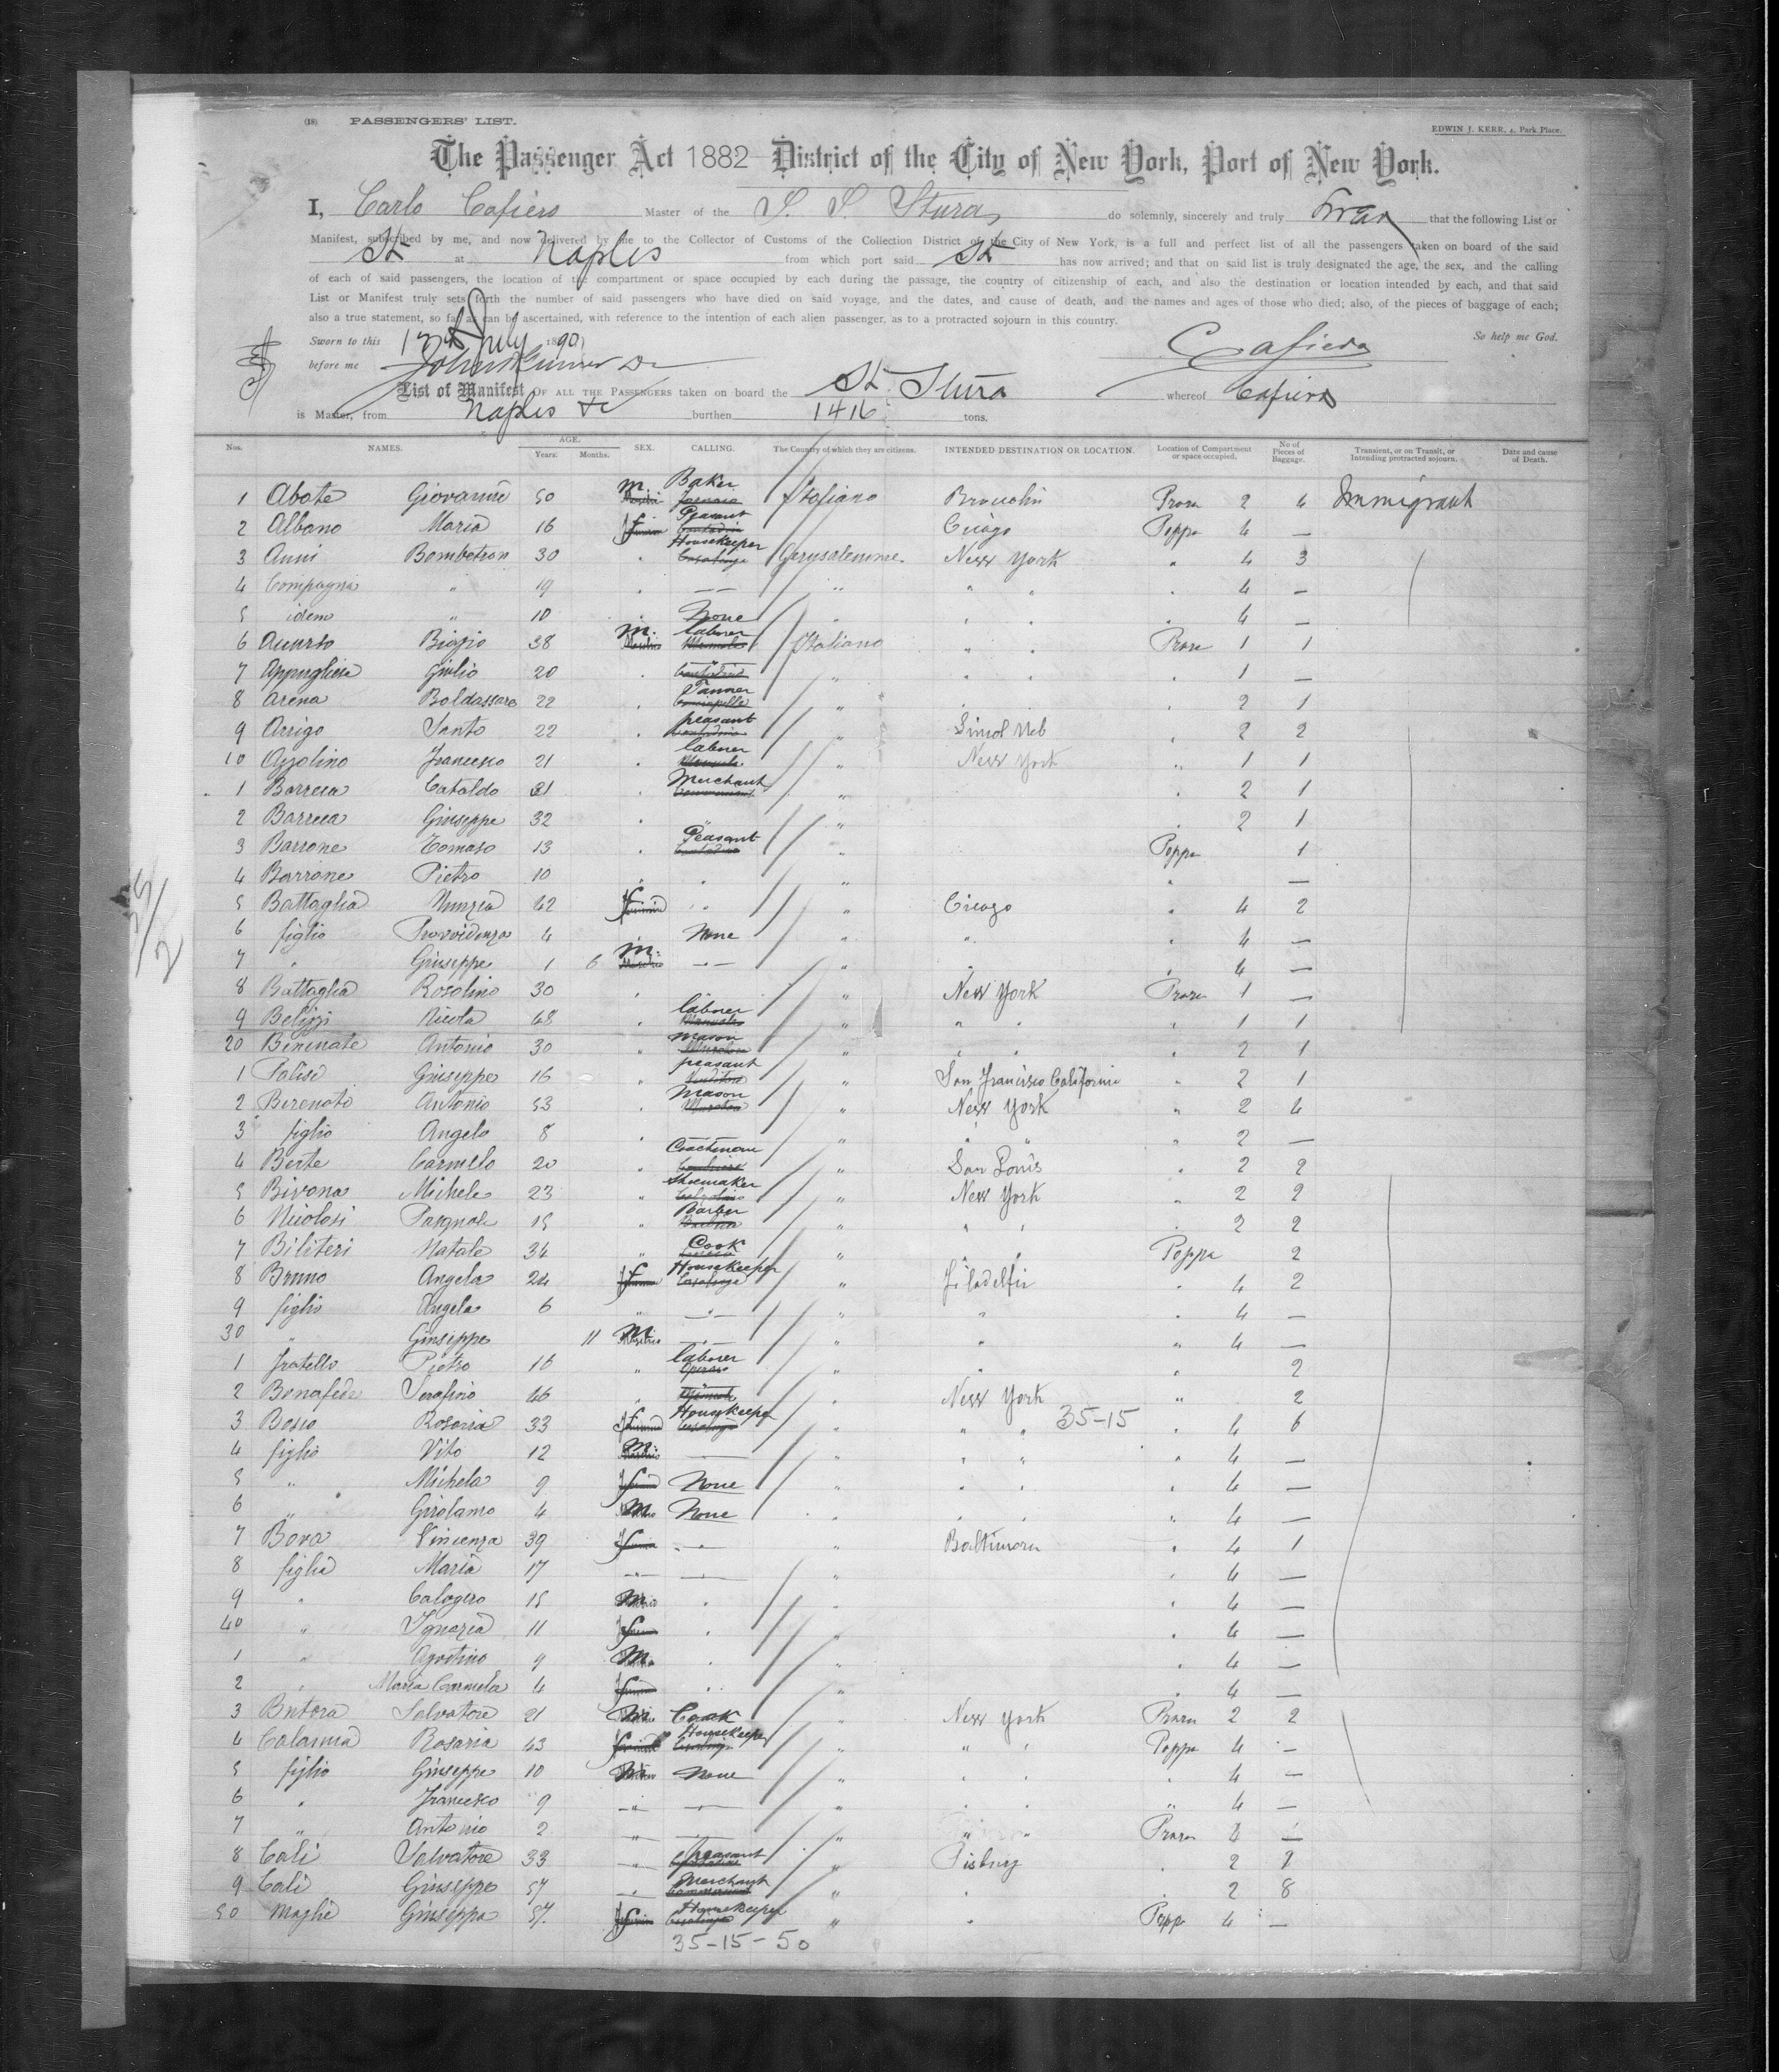 (18) PASSENGERS' LIST.
EDWIN J. KERR, 4, Park Place.
The Passenger Act 1882 District of the City of New York, Port of New York.
I, Carlo Cafiero Master of the S. S. Stura do solemnly, sincerely and truly Swear that the following List or
Manifest, subscribed by me, and now delivered by me to the Collector of Customs of the Collection District of the City of New York, is a full and perfect list of all the passengers taken on board of the said
St at Naples from which port said St has now arrived; and that on said list is truly designated the age, the sex, and the calling
of each of said passengers, the location of the compartment or space occupied by each during the passage, the country of citizenship of each, and also the destination or location intended by each, and that said
List or Manifest truly sets forth the number of said passengers who have died on said voyage, and the dates, and cause of death, and the names and ages of those who died; also, of the pieces of baggage of each;
also a true statement, so far as can be ascertained, with reference to the intention of each alien passenger, as to a protracted sojourn in this country.
Sworn to this July 1890 Cafiero So help me God.
before me
List or Manifest OF ALL THE PASSENGERS taken on board the St. Stura whereof Cafiero
is Master, from Naples &c burthen 1416 tons.
Nos. NAMES. AGE. Years. Months. SEX. CALLING. The Country of which they are citizens. INTENDED DESTINATION OR LOCATION. Location of Compartment or space occupied. No of Pieces of Baggage. Transient, or on Transit, or Intending protracted sojourn. Date and cause of Death.
1 Abate Giovanni 50 M. Baker Italiano Broucolin Prora 2 4 Immigrant
2 Albano Maria 16 f Peasant Cicago Poppa 4 —
3 Anni Bambetron 30 Housekeeper Gerusalemme New York " 4 3
4 Compagni " 19 " — " " " 4 —
5 idem " 10 None 4 —
6 Acurso Biagio 38 M. laborer Italiano " " Prora 1 1
7 Giulio 20 " " 1 —
8 Arena Baldassare 22 Tanner " 2 1
9 Arrigo Santo 22 peasant " 2 2
10 Azzolino Francesco 21 laborer " New York " 1 1
1 Barreca Cataldo 31 Merchant " 2 1
2 Barreca Giuseppe 32 " " 2 1
3 Barrone Tomaso 13 Peasant " Poppa 1
4 Barrone Pietro 10 " " " —
5 Battaglia Nunzia 42 f " " Cicago " 4 2
6 figlio Provvidenza 4 None " " " 4 —
7 " Giuseppe 1 6 M. — " " 4 —
8 Battaglia Rosolino 30 " New York Prora 1 —
9 Belizzi Nicola 48 laborer " " " 1 1
20 Beninate Antonio 30 " mason " " " 2 1
1 Salise Giuseppe 16 " peasant " San Francisco California " 2 1
2 Berenato Antonio 53 Mason " New York " 2 4
3 figlio Angelo 8 — " " " 2 —
4 Berte Carmelo 20 Coachman " San Louis " 2 2
5 Bivona Michele 23 " Shoemaker " New York " 2 2
6 Nicolosi Pasquale 15 " Barber " " " 2 2
7 Biliteri Natale 34 " Cook " " " Poppa 2
8 Bruno Angela 24 f Housekeeper " Filadelfia " 4 2
9 figlio Angela 6 " — " " 4 —
30 " Giuseppe 11 M — " " 4 —
1 fratello Pietro 16 " laborer " " 2
2 Bonafede Serafino 46 " New York " 2
3 Bosco Rosaria 33 f Housekeeper " " 35-15 " 4 6
4 figlio Vito 12 M — " " " 4 —
5 " Michela 9 f None " " " 4 —
6 " Girolamo 4 M None " " " 4 —
7 Bova Vincenza 39 f — " Baltimora " 4 1
8 figlia Maria 17 — — " " 4 —
9 " Calogero 15 M " " 4 —
40 " Ignazia 11 f " " 4 —
1 " Agostino 9 M " " 4 —
2 " Maria Carmela 4 f " " 4 —
3 Butera Salvatore 21 M Cook New York Prora 2 2
4 Calanna Rosaria 43 f Housekeeper " " " Poppa 4 —
5 figlio Giuseppe 10 M None " " " 4 —
6 " Francesco 9 — — " " " 4 —
7 " Antonio 2 — — " " " Prora 4 —
8 Cali Salvatore 33 — Peasant " Pisburg 2 2
9 Cali Giuseppe 57 — Merchant " " 2 8
50 Moglie Giuseppa 57 f Housekeeper " " Poppa 4 —
35-15-50